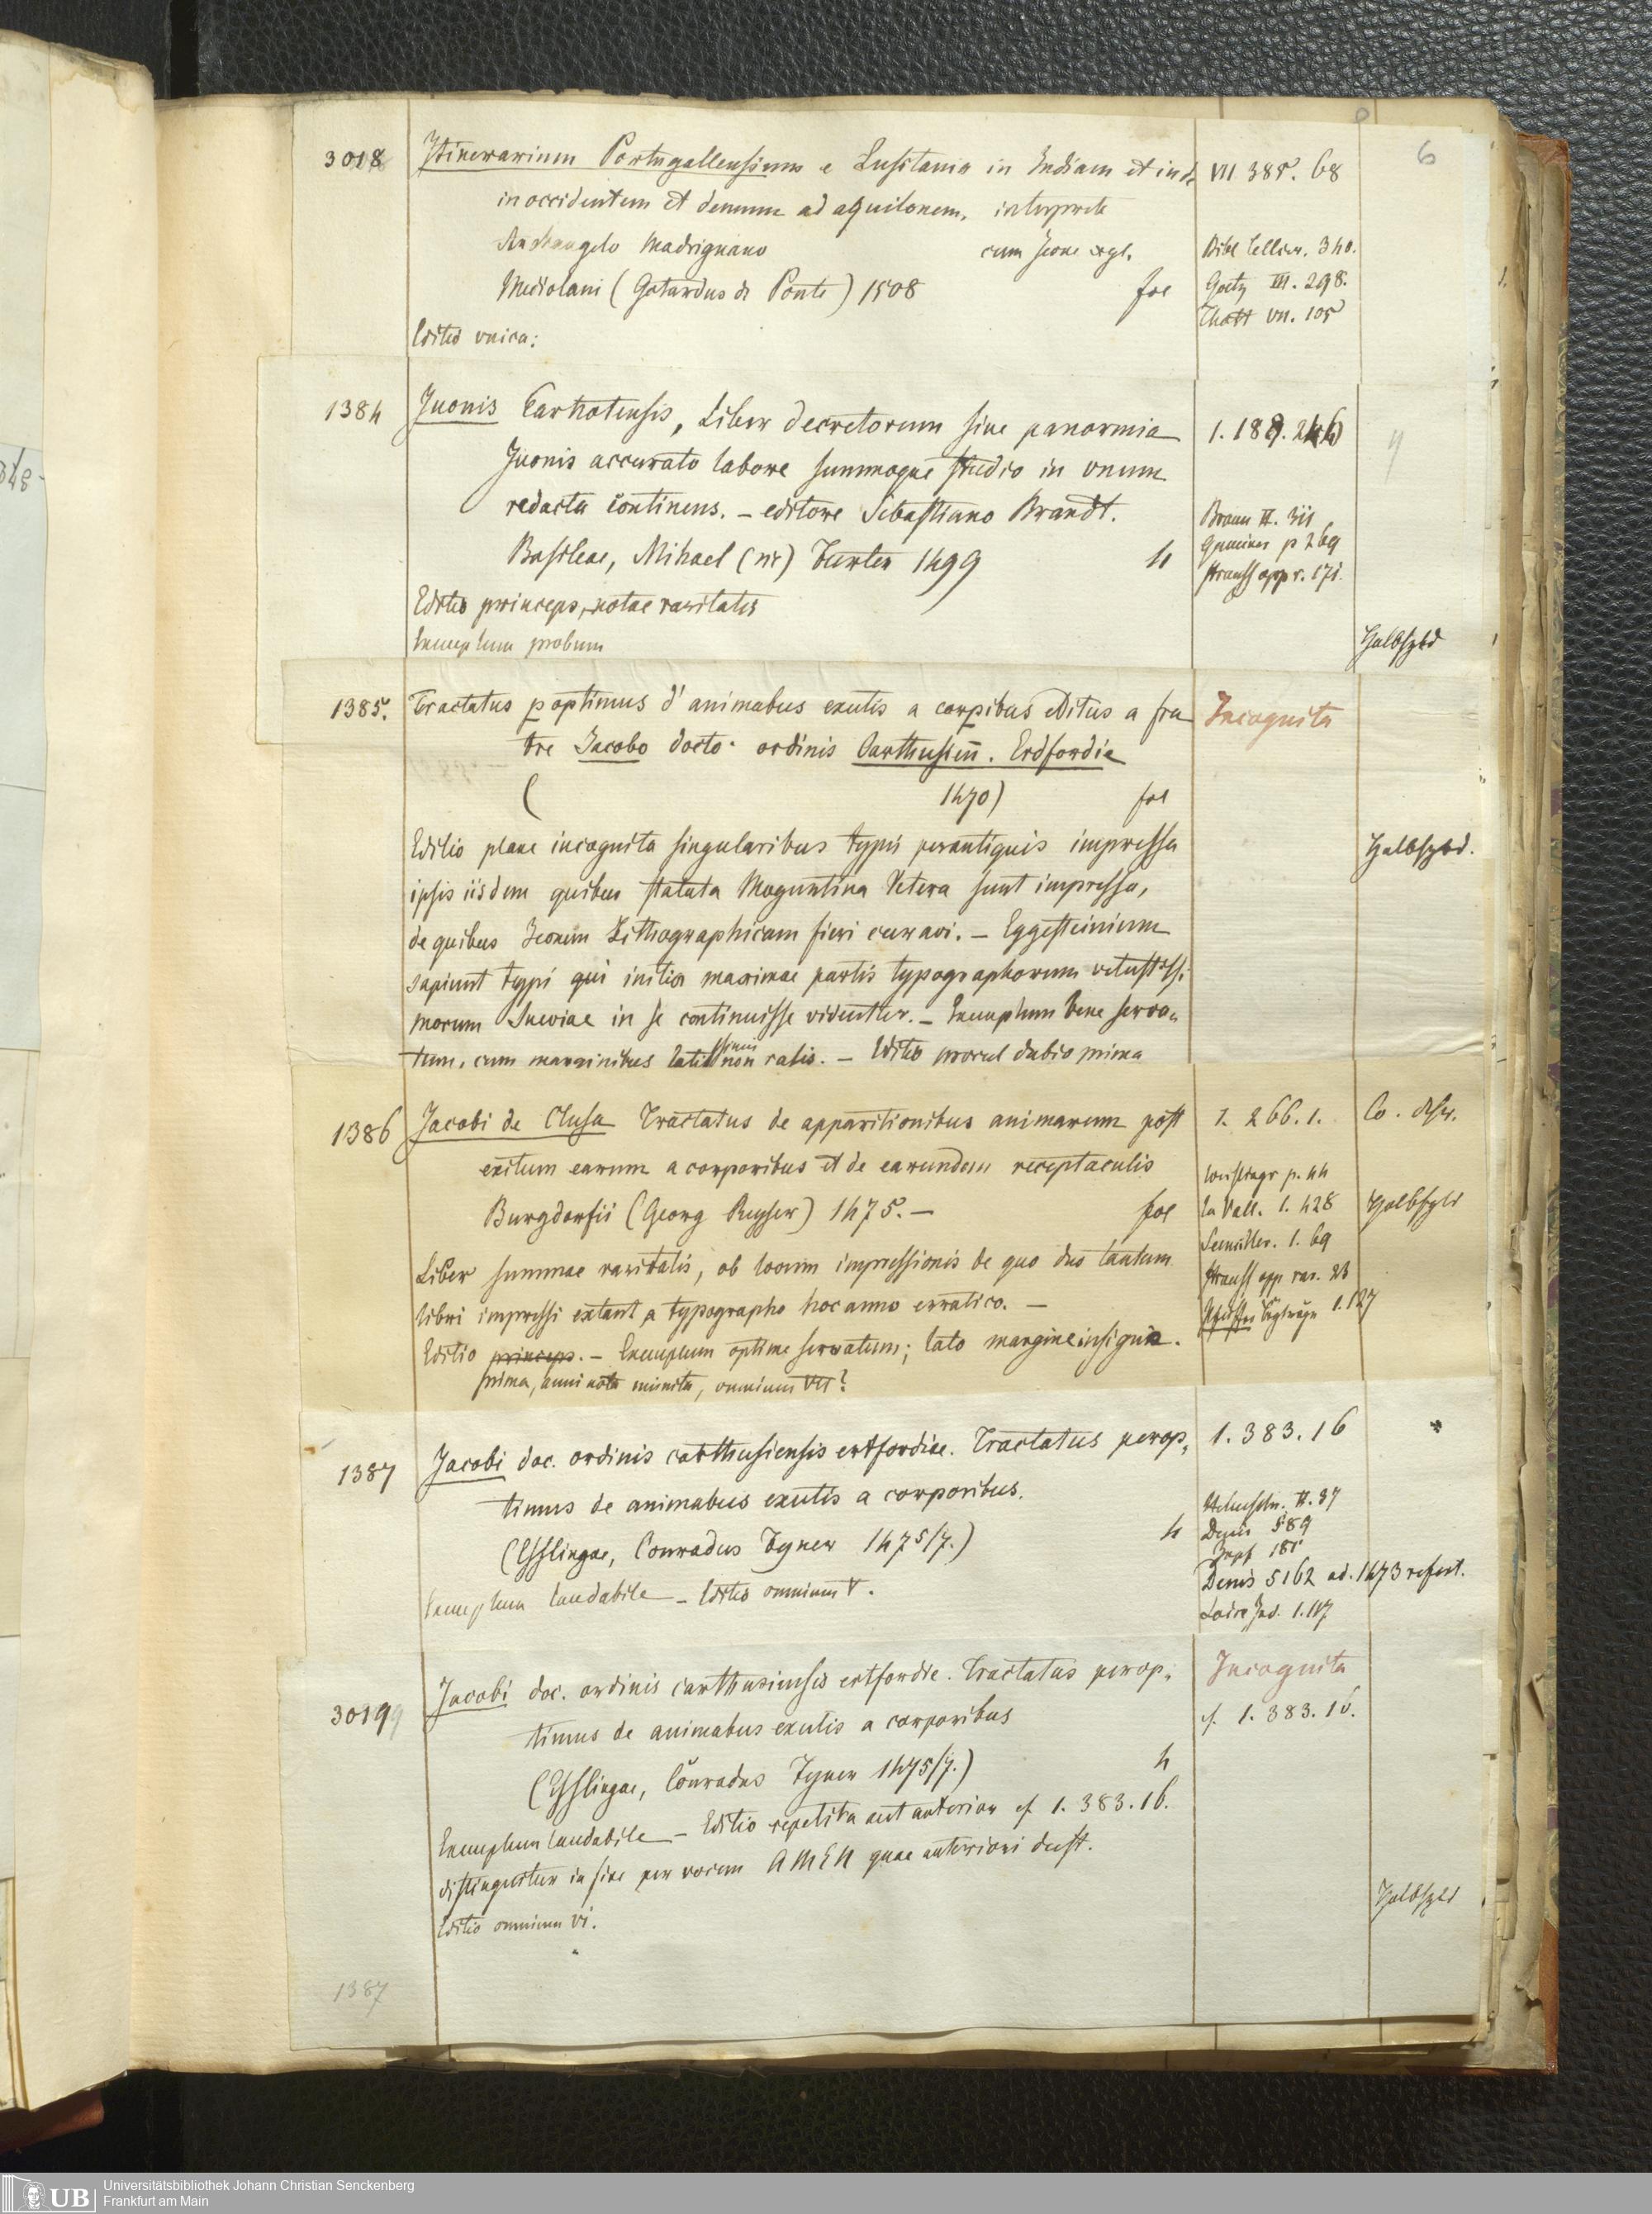 6
3018
Itinerarium Portugallensium e Lusitania in Indiam et inde
in occidentem et demum ad aquilonem, interprete
Archangelo Madrignano cum Icone xyl.
Mediolani (Gotardus de Ponte) 1508 fol
Editio unica:
VII 385. 68
Bibl Tellier. 340.
Goetz III. 298.
Thott VII. 105
1384
Juonis Carnotensis, Liber decretorum sive panormia
Juonis accurato labore summoque studio in vnum
redacta continens. – editore Sebastiano Brandt.
Basileae, Mihael (sic) Furter 1499 4
Editio princeps, notae raritatis
Exemplum probum
1. 189.
Braun II. 311
p 269
Strauss opp r. 171.
Halbfzbd
1385.
Tractatus poptimus d' animabus exutis a corpibus editus a fra
tre Jacobo docto. ordinis Carthusien. Erdfordie
( 1470) fol
Editio plane incognita singularibus typis perantiquis impressa
ipsis iisdem quibus statuta Moguntina Vetera sunt impressa,
de quibus Iconem Lithographicam fieri curavi. – Eggesteinium
sapiunt typi qui initia maximae partis typographorum vetustissi
morum Sueviae in se continuisse videntur. – Exemplum bene serva,
tum, cum marginibus latissimis non rasis. – Editio procul dubio prima
Incognita
Halbfzbd.
1386
Jacobi de Clusa Tractatus de apparitionibus animarum post
exitum earum a corporibus et de earundem receptaculis
Burgdorfii (Georg Reyser) 1475. – fol
Liber summae raritatis, ob locum impressionis de quo duo tantum
libri impressi extant a typographo hoc anno erratico. –
Editio princeps. – Exemplum optime servatum; lato margine insigne.
prima, anni nota munita, omnium VII?
1. 266. 1.
Weislingr p. 44
La Vall. 1. 428
Seemiller. 1. 69
Strauss opp rar. 23
1. 127
Halbfzbd
1387
Jacobi doc. ordinis carthusiensis ertfordie. Tractatus perop,
timus de animabus exutis a corporibus.
(Esslingae, Conradus Fyner 1475/7.) 4
Exemplum laudabile – Editio omnium V.
1. 383. 16
Helmschr. II. 37
Denis 589
Zapf 185
Denis 5162 ad. 1473 refert.
Laire Ind. 1. 117
30199
Jacobi doc. ordinis carthusiensis ertfordie. Tractatus perop,
timus de animabus exutis a corporibus
(Esslingae, Conradus Fyner 1475/7.) 4
Exemplum laudabile – Editio repetita aut anterior cf 1. 383. 16.
distinguitur in fine per vocem AMEN quae anteriori deest.
Editio omnium VI.
Incognita
cf. 1. 383. 16.
Halbfzbd
1387
UB
Universitätsbibliothek Johann Christian Senckenberg
Frankfurt am Main